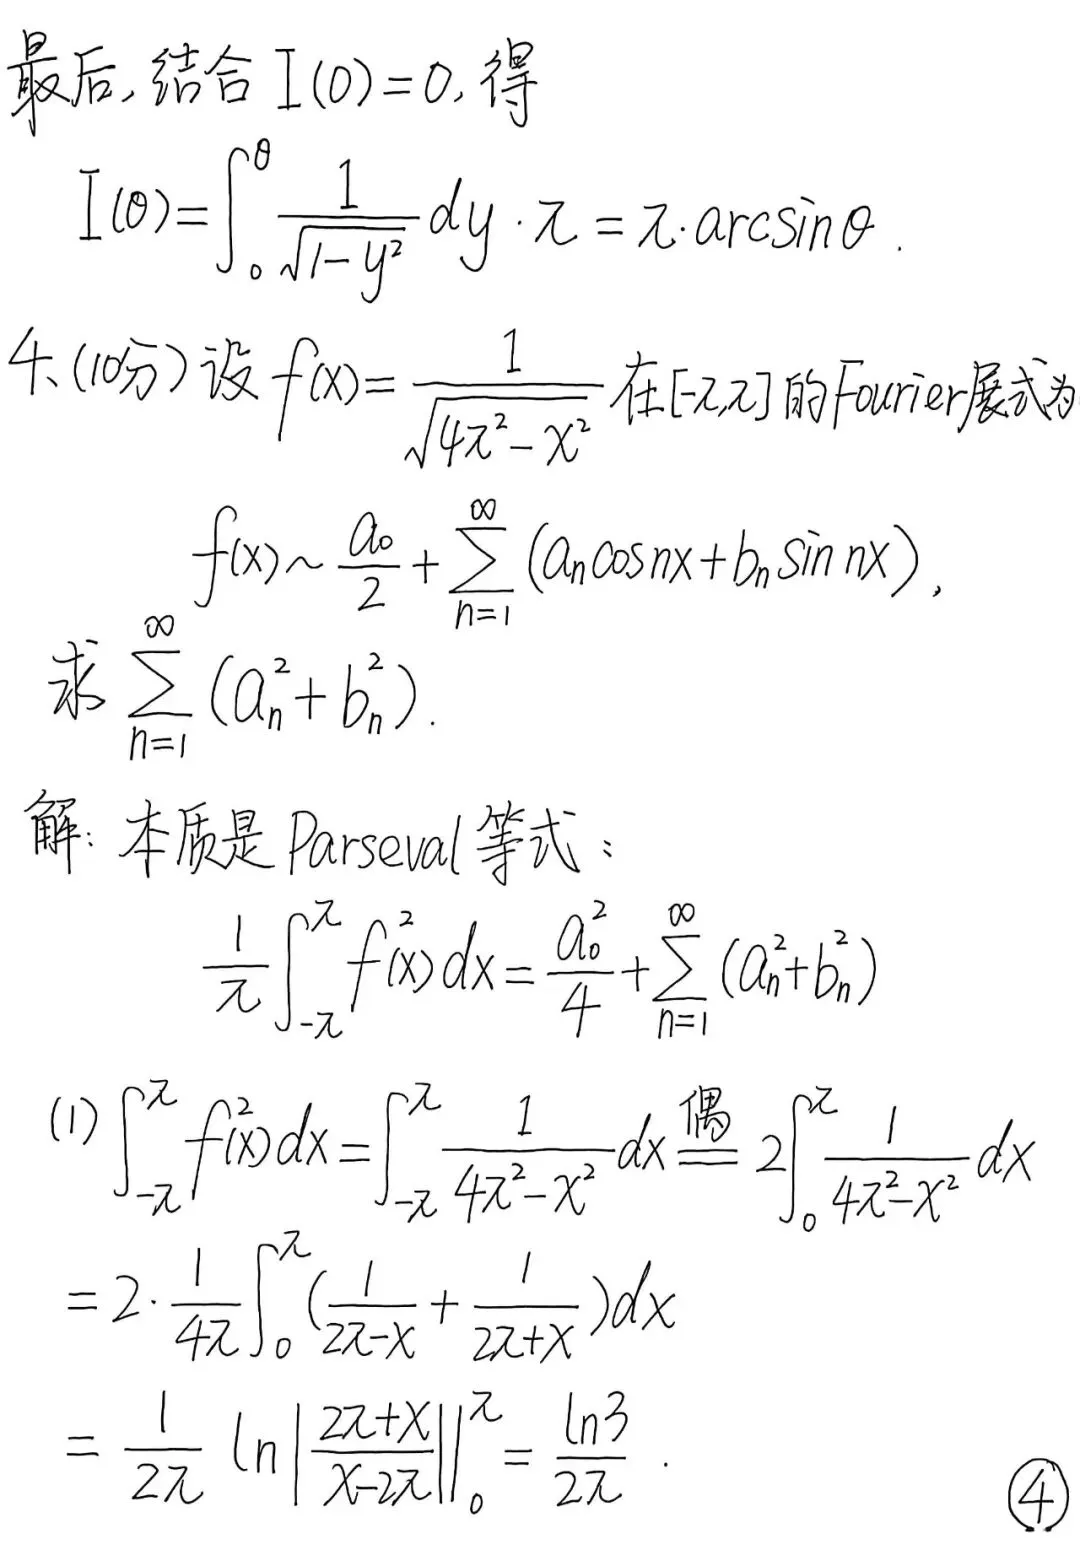 最后,结合 I(0)=0,得
I(θ)=∫_0^θ 1/√(1-y²) dy·π=π·arcsinθ.
4、(10分)设 f(x)=1/√(4π²-x²) 在[-π,π]的Fourier展式为
f(x)~a₀/2+∑_{n=1}^∞(aₙcosnx+bₙsinnx),
求 ∑_{n=1}^∞(aₙ²+bₙ²).
解:本质是Parseval等式:
1/π ∫_{-π}^π f²(x)dx=a₀²/4+∑_{n=1}^∞(aₙ²+bₙ²)
(1) ∫_{-π}^π f²(x)dx=∫_{-π}^π 1/(4π²-x²) dx 偶== 2∫_0^π 1/(4π²-x²) dx
=2·1/(4π) ∫_0^π (1/(2π-x)+1/(2π+x))dx
=1/(2π) ln|(2π+x)/(x-2π)||_0^π=ln3/(2π).
④